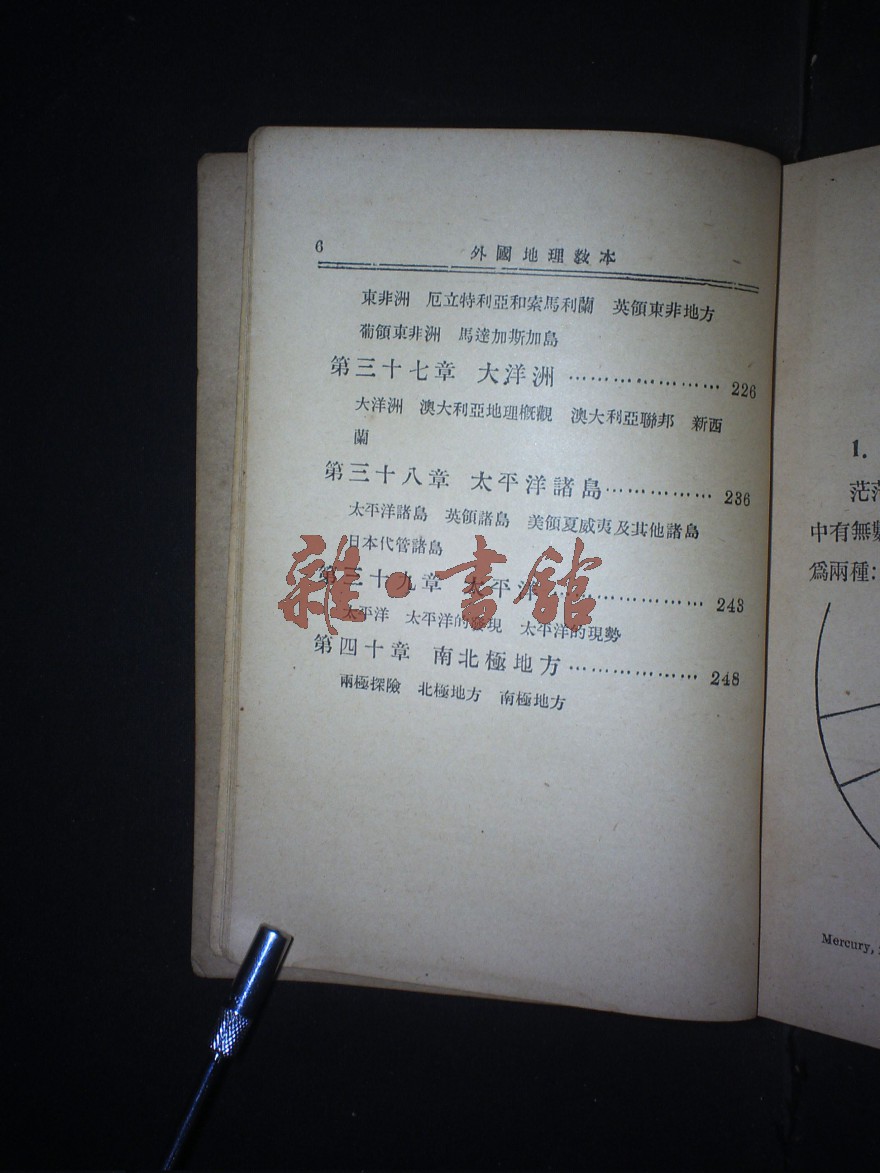 6 外國地理教本
東非洲 厄立特利亞和索馬利蘭 英領東非地方
葡領東非洲 馬達加斯加島
第三十七章 大洋洲 ………………… 226
大洋洲 澳大利亞地理概觀 澳大利亞聯邦 新西
蘭
第三十八章 太平洋諸島 …………… 236
太平洋諸島 英領諸島 美領夏威夷及其他諸島
日本代管諸島
第三十九章 太平洋 ………………… 243
太平洋 太平洋的發現 太平洋的現勢
第四十章 南北極地方 ……………… 248
兩極探險 北極地方 南極地方
雜·書館
1.
茫
中有無
爲兩種:
Mercury,